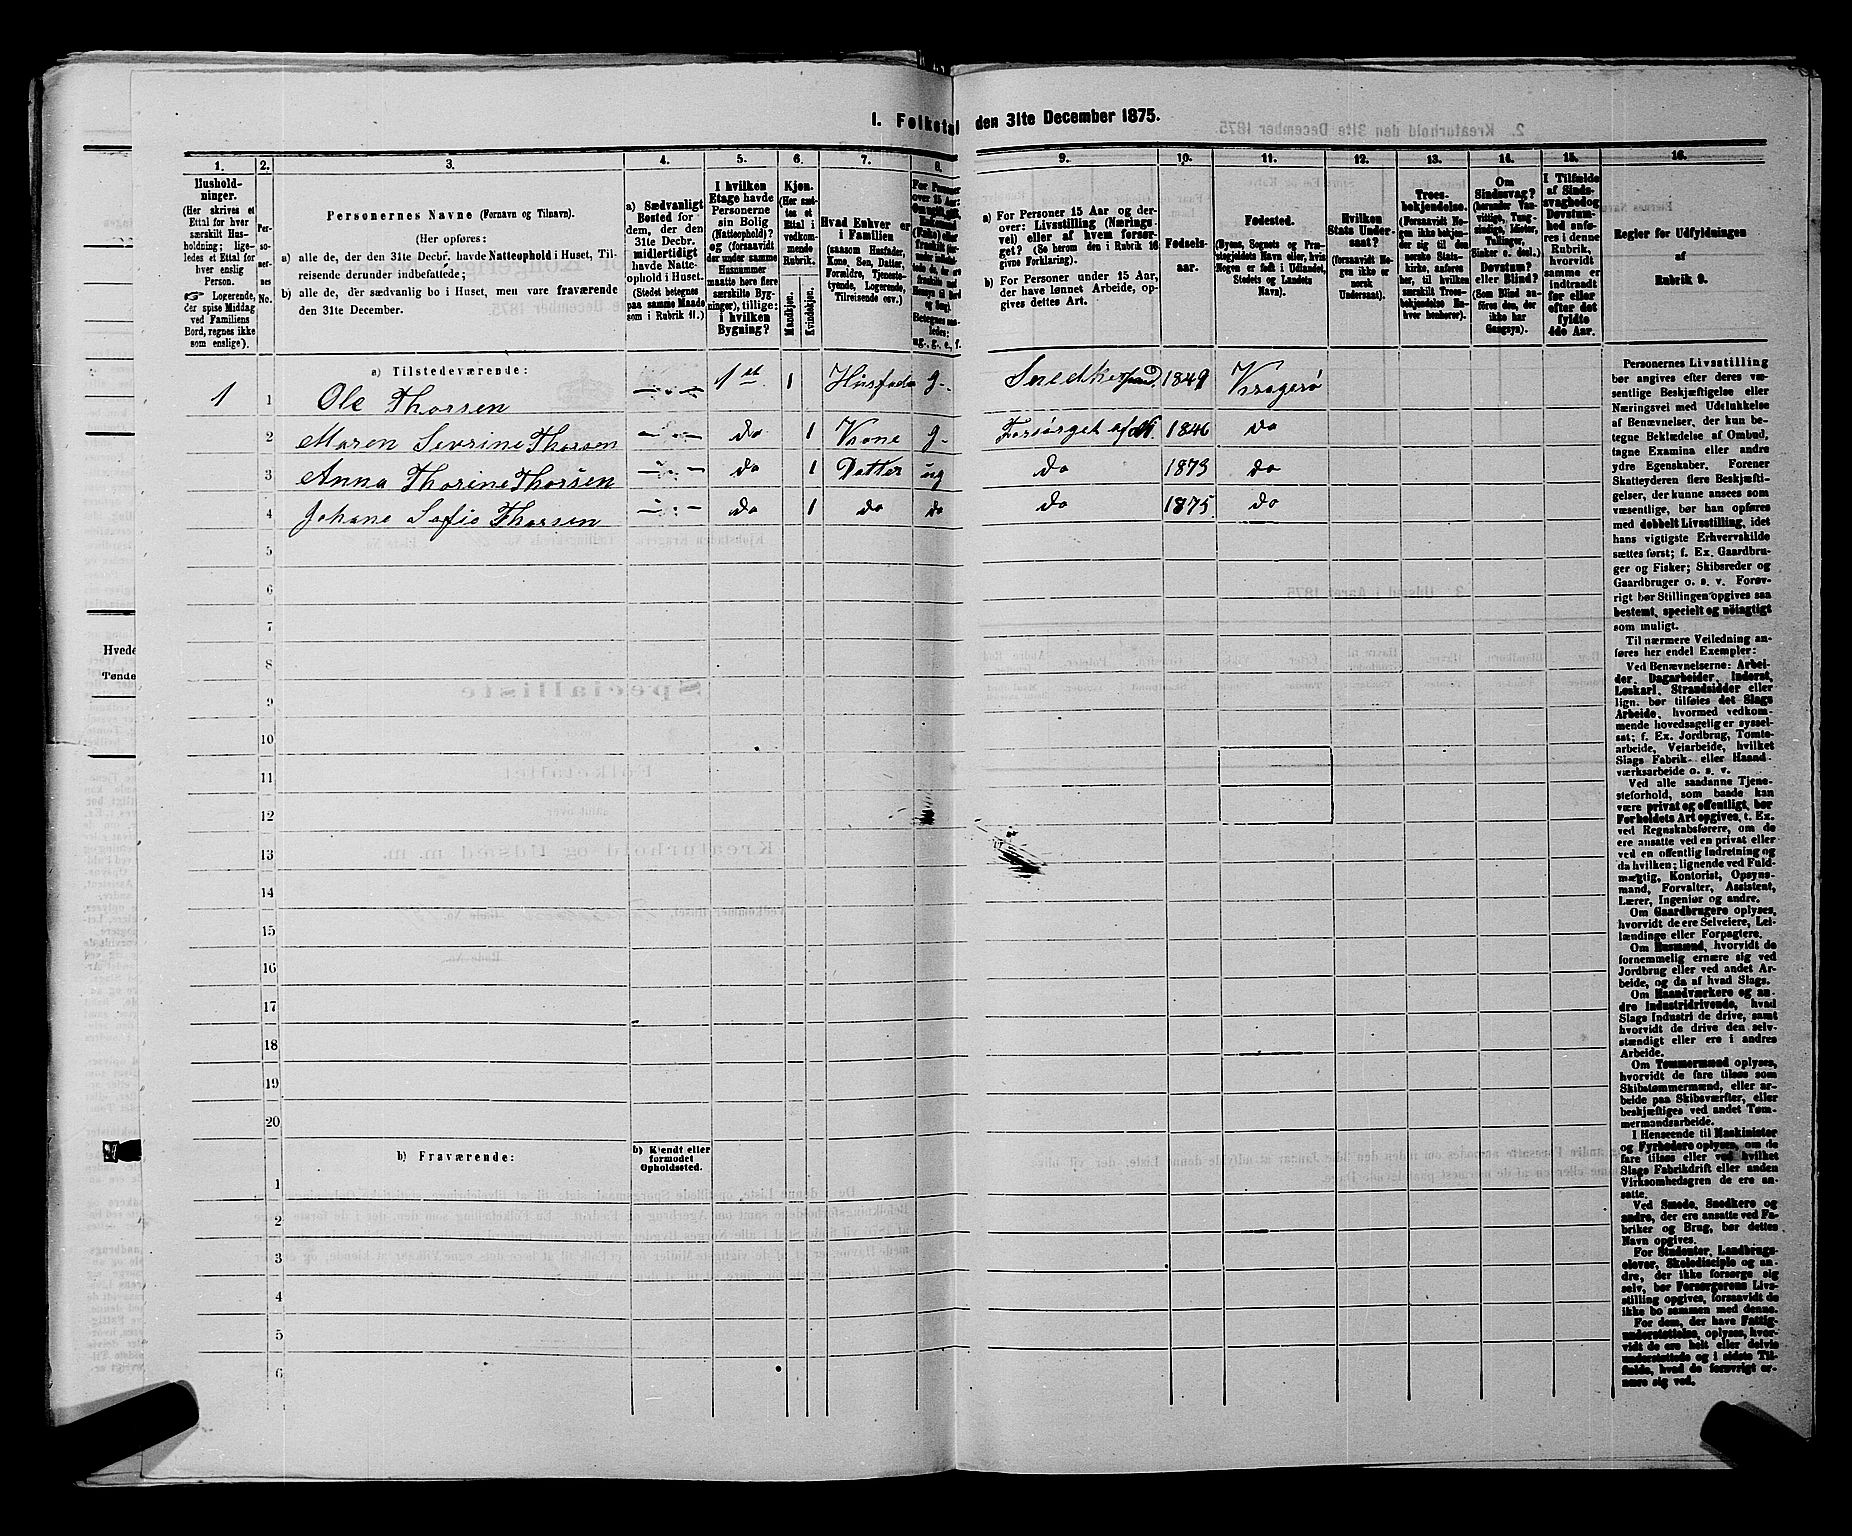 1. Folketal den 31te December 1875.
1. 2. 3. 4. 5. 6. 7. 8. 9. 10. 11. 12. 13. 14. 15. 16.
Hushold-
ninger.
(Her skrives et
Ettal for hver
særskilt Hus-
holdning; lige-
ledes et Ettal for
hver enslig
Person.
☞ Logerende,
der spise Middag
ved Familiens
Bord, regnes ikke
som enslige).
Per-
so-
ner-
nes
No.
Personernes Navne (Fornavn og Tilnavn).
(Her opføres:
a) alle de, der den 31te Decbr. havde Natteophold i Huset, Til-
reisende derunder indbefattede;
b) alle de, der sædvanlig bo i Huset, men vare fraværende
den 31te December.
a) Sædvanligt
Bosted for
dem, der den
31te Decbr.
midlertidigt
havde Natte-
ophold i Huset.
(Stedet betegnes
paa samme Maade
som i Rubrik 11.)
I hvilken
Etage havde
Personerne
sin Bolig
(Natteophold)?
og (forsaavidt
der under samme
Husnummer
maatte høre flere
særskilte Byg-
ninger), tillige:
i hvilken
Bygning?
Kjøn.
(Her sæt-
tes et
Ettal i
vedkom-
mende
Rubrik.
Mandkjøn.
Kvindekjøn.
Hvad Enhver er
i Familien
(saasom Husfader,
Kone, Søn, Datter,
Forældre, Tjeneste-
tyende, Logerende,
Tilreisende osv.)
For Personer
over 15 Aar:
Betegnes saa-
ledes:
ug., g., e., f.
a) For Personer 15 Aar og der-
over: Livsstilling (Nærings-
vei) eller af hvem forsør-
get? (Se herom den i Rubrik 16
givne Forklaring).
b) For Personer under 15 Aar,
der have lønnet Arbeide, op-
gives dettes Art.
Fødsels-
aar.
Fødested.
(Byens, Sognets og Præ-
stegjeldets Navn eller, hvis
Nogen er født i Udlandet,
Stedets og Landets
Navn).
Hvilken
Stats Under-
saat?
(forsaavidt No-
gen ikke er
norsk
Undersaat).
Troes-
bekjendelse.
(Forsaavidt No-
gen ikke bekjen-
der sig til den
norske Stats-
kirke, anføres
her, til hvilken
særskilt Troes-
bekjendelse En-
hver henhører).
Om
Sindssvag?
(herunder Van-
vittige, Tung-
sindige, Idioter,
Tullinger,
Sinker o. desl.).
Døvstum?
eller Blind?
(Som Blind an-
føres den, der
ikke har
Gangsyn).
I Tilfælde
af Sinds-
svaghed og
Døvstum-
hed anfø-
res i denne
Rubrik,
hvorvidt
samme er
indtraadt
før eller
efter det
fyldte
4de Aar.
Regler for Udfyldningen
af
Rubrik 9.
a) Tilstedeværende:
1 1 Ole Thorsen 1st 1 Husfader g. Snedkersvend 1849 Kragerø
2 Maren Severine Thorsen do 1 Kone g. Forsørget af do. 1846 do
3 Anna Thorine Thorsen do 1 Datter ug do 1873 do
4 Johane Sofie Thorsen do 1 do do do 1875 do
5
6
7
8
9
10
11
12
13
14
15
16
17
18
19
20
b) Fraværende:
b) Kjendt eller
formodet
Opholdssted.
1
2
3
4
5
6
Personernes Livsstilling
bør angives efter deres væ-
sentlige Beskjæftigelse eller
Næringsvei med Udelukkelse
af Benævnelser, der kun be-
tegne Beklædelse af Ombud,
tagne Examina eller andre
ydre Egenskaber. Forener
Skatteyderen flere Beskjæfti-
gelser, der kunne ansees som
væsentlige, bør han opføres
med dobbelt Livsstilling, idet
hans vigtigste Erhvervskilde
sættes først; f. Ex. Gaardbru-
ger og Fisker; Skibsreder og
Gaardbruger o. s. v. Forøv-
rigt bør Stillingen opgives saa
bestemt, specielt og nøiagtigt
som muligt.
Til nærmere Veiledning an-
føres her endel Exempler:
Ved Benævnelserne: Arbei-
der, Dagarbeider, Inderst,
Løskarl, Strandsidder eller
lign. bør tilføies det Slags
Arbeide, hvormed vedkom-
mende hovedsagelig er syssel-
sat; f. Ex. Jordbrug, Tomte-
arbeide, Veiarbeide, hvilket
Slags Fabrik- eller Haand-
værksarbeide o. s. v.
Ved alle saadanne Tjene-
steforhold, som baade kan
være privat og offentligt, bør
Forholdets Art opgives, t. Ex.
ved Regnskabsførere, om de
ere ansatte ved en privat eller
ved en offentlig Indretning og
da hvilken; lignende ved Fuld-
mægtig, Kontorist, Opsyns-
mand, Forvalter, Assistent,
Lærer, Ingeniør og andre.
Om Gaardbrugere oplyses,
hvorvidt de ere Selveiere, Lei-
lændinge eller Forpagtere.
Om Husmænd, hvorvidt de
fornemmelig ernære sig ved
Jordbrug eller ved andet Ar-
beide, og da af hvad Slags.
Om Haandværkere og an-
dre Industridrivende, hvad
Slags Industri de drive, samt
hvorvidt de drive den selv-
stændigt eller ere i andres
Arbeide.
Om Tømmermænd oplyses,
hvorvidt de fare tilsøs som
Skibstømmermænd, eller ar-
beide paa Skibsværfter, eller
beskjæftiges ved andet Tøm-
mermandsarbeide.
I Henseende til Maskinister
og Fyrbødere oplyses, om de
fare tilsøs eller ved hvilket
Slags Fabrikdrift eller anden
Virksomhedsgren de ere an-
satte.
Ved Smede, Snedkere og
andre, der ere ansatte ved Fa-
briker og Brug, bør dettes
Navn opgives.
For Studenter, Landbrugs-
elever, Skoledisciple og an-
dre, der ikke forsørge sig
selv, bør Forsørgerens Livs-
stilling opgives, forsaavidt de
ikke bo sammen med denne.
For dem, der have Fattig-
understøttelse, oplyses, hvor-
vidt de ere helt eller delvis
understøttede og i sidste Til-
fælde, hvad de forøvrigt er-
nære sig ved.
Hvede
Tønde